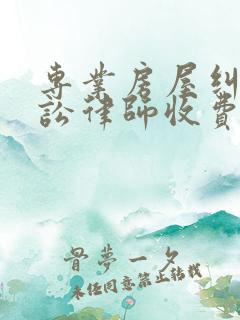 專業房屋糾
訟律師收費
骨夢一夕
未經同意禁止轉載